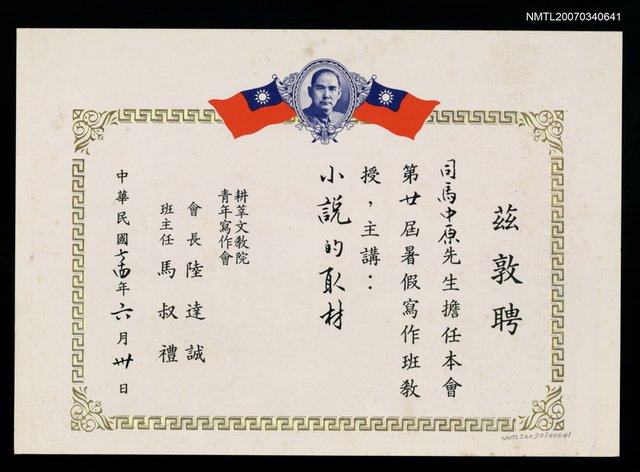 NMTL20070340641
茲敦聘
司馬中原先生擔任本會
第廿屆暑假寫作班教
授，主講：
小說的取材
耕莘文教院
青年寫作會
會長 陸達誠
班主任 馬叔禮
中華民國七十四年六月卅日
NMTL20070340641